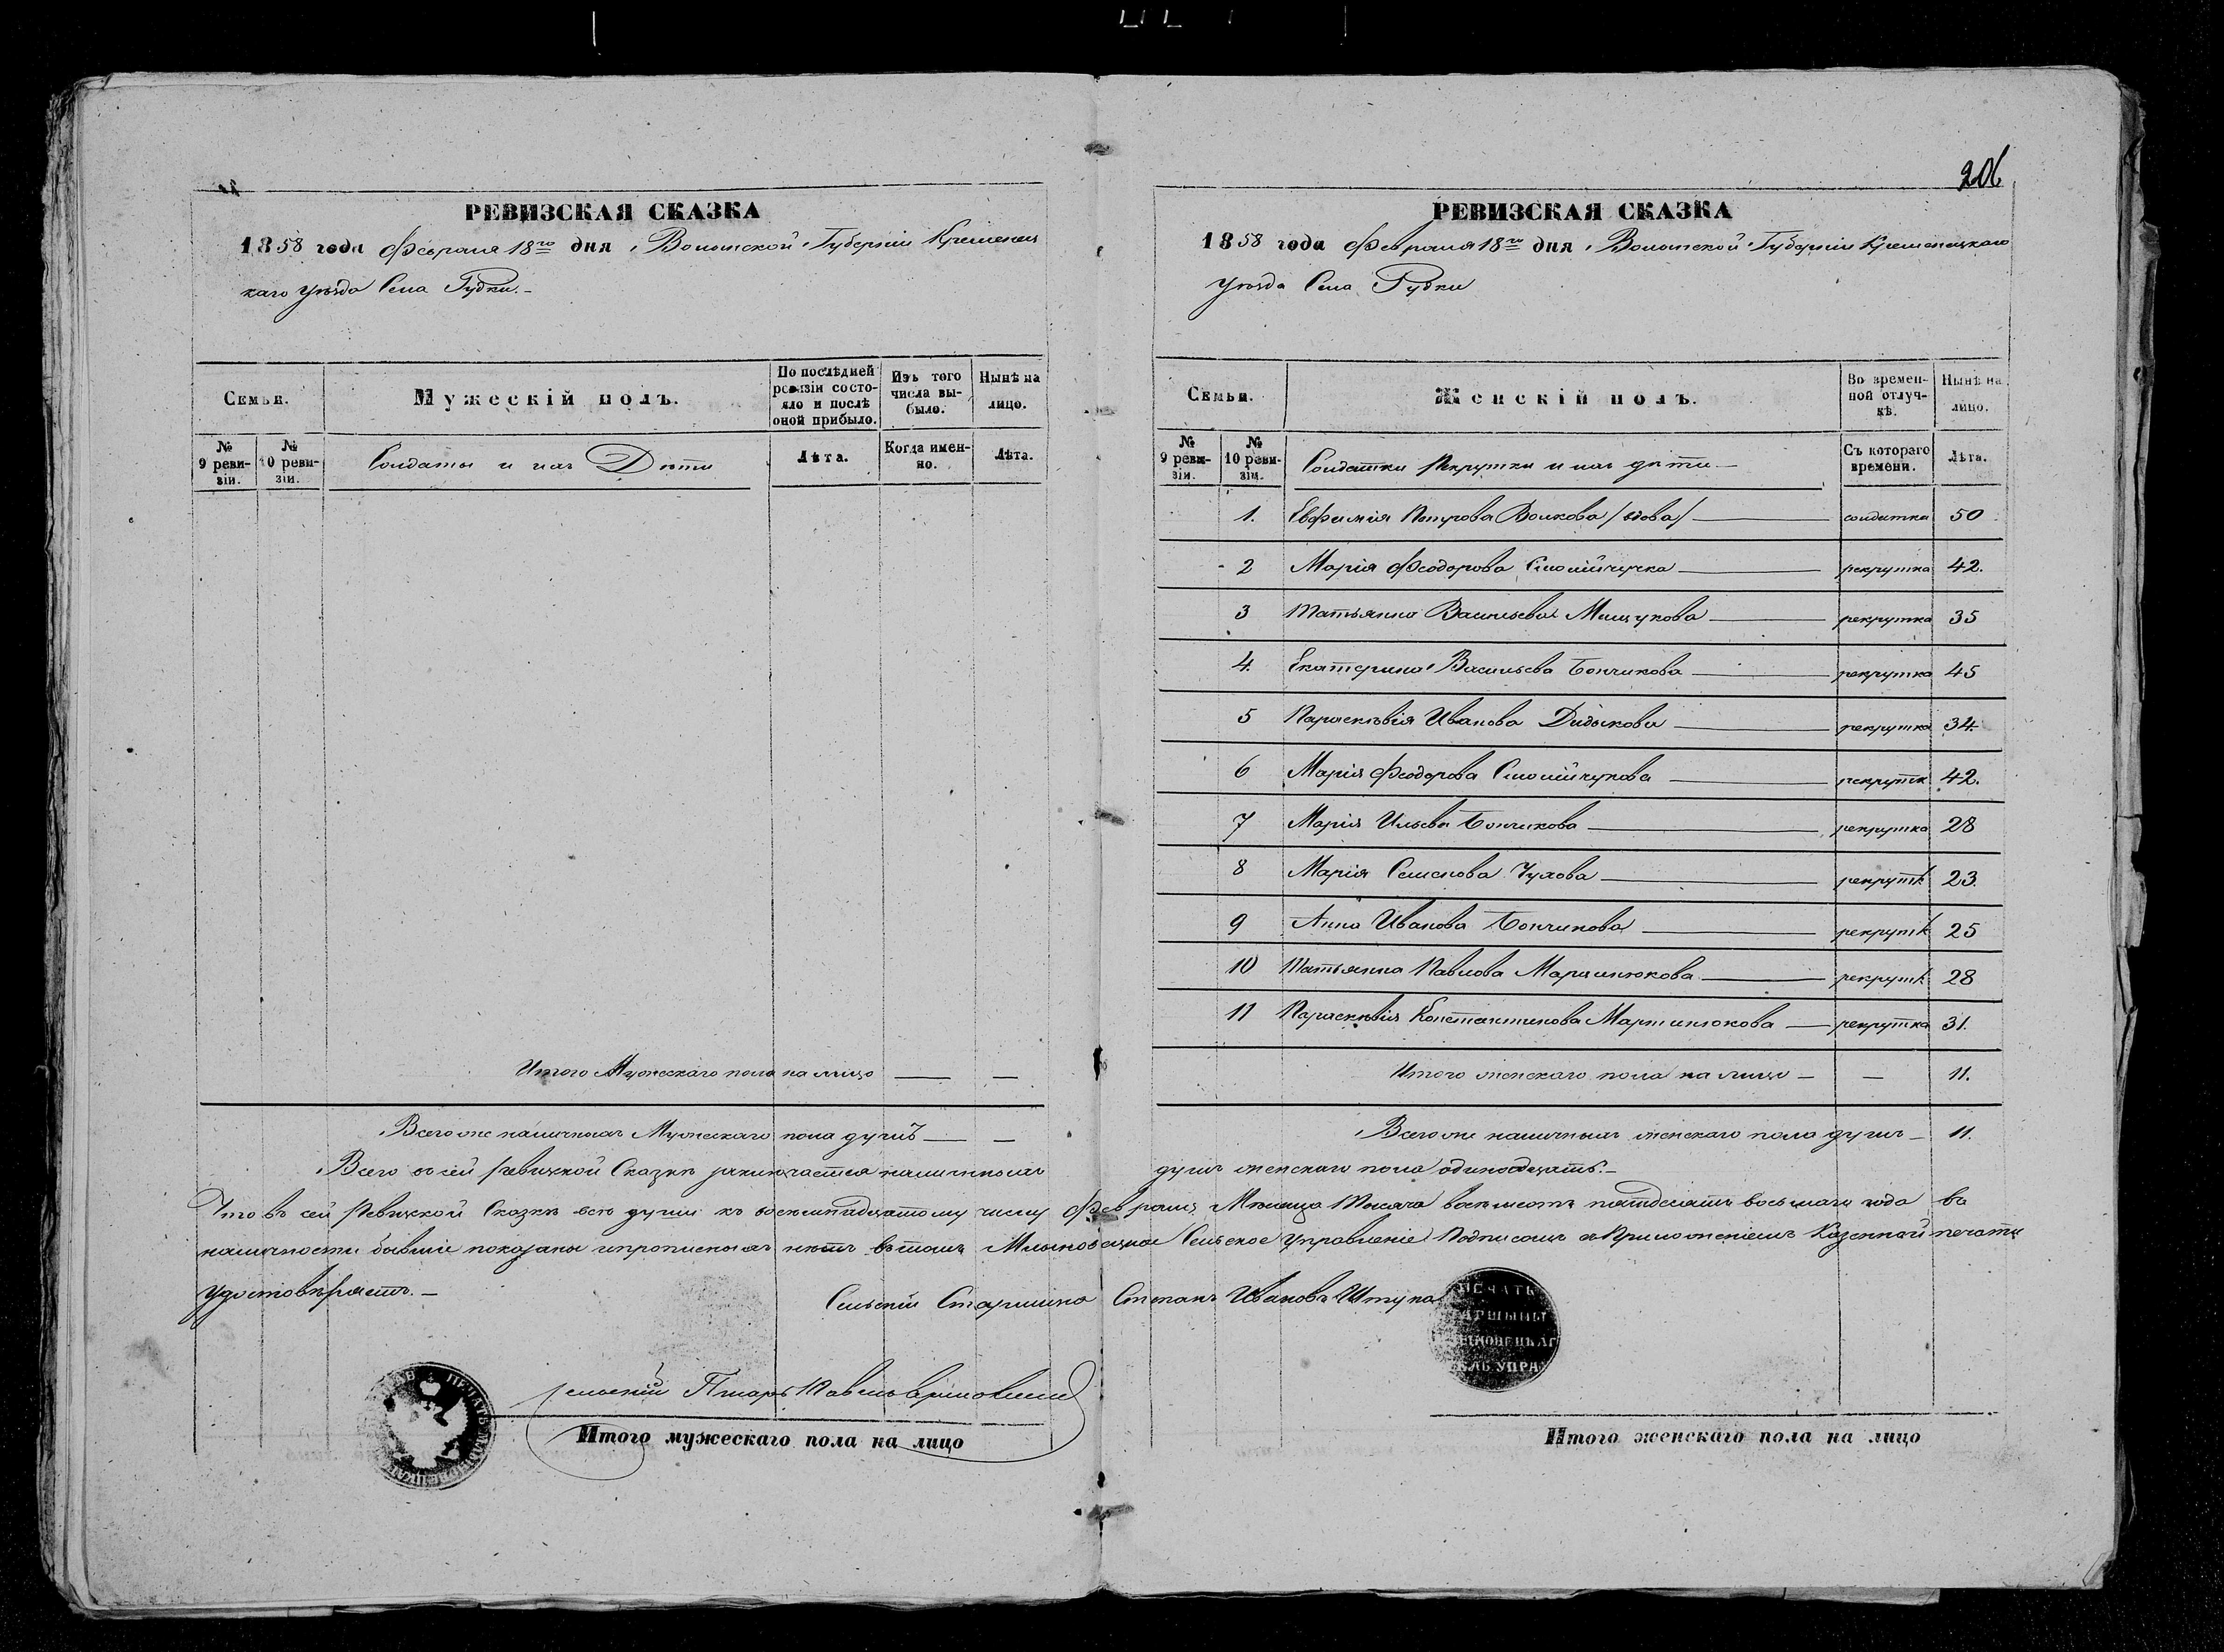 206
РЕВИЗСКАЯ СКАЗКА
1858 года Февраля 18го дня Волынской Губерніи Кременец
каго уѣзда Села Рудки.
Семьи.
Мужескій полъ.
По послѣдней ревизіи состояло и послѣ оной прибыло.
Изъ того числа выбыло.
Нынѣ на лицо.
№ 9 ревизіи.
№ 10 ревизіи.
Солдаты и ихъ Дѣти
Лѣта.
Когда именно.
Лѣта.
Итого Мужескаго пола на лицо — —
Всего же наличныхъ Мужескаго пола душъ — —
РЕВИЗСКАЯ СКАЗКА
1858 года Февраля 18го дня Волынской Губерніи Кременецкаго
уѣзда Села Рудки
Семьи.
Женскій полъ.
Во временной отлучкѣ.
Нынѣ на лицо.
№ 9 ревизіи.
№ 10 ревизіи.
Солдатки Рекрутки и ихъ дѣти
Съ котораго времени.
Лѣта.
1. Евфимія Петрова Волкова /вдова/ солдатка 50
2 Марія Феодорова рекрутка 42.
3 Татьянна Васильева Мищукова рекрутка 35
4. Екатерина Васильева Бончикова рекрутка 45
5 Параскевія Иванова Дидыкова рекрутка 34.
6 Марія Феодорова рекрутк 42.
7 Марія Ильева Бончикова рекрутка 28
8 Марія Семенова Чухова рекрутк 23.
9 Анна Иванова Бончикова рекрутк 25
10 Татьянна Павлова Мартинюкова рекрутк 28
11 Параскевія Константинова Мартинюкова рекрутка 31.
Итого женскаго пола на лицо — — 11.
Всего же наличныхъ женскаго пола душъ — 11.
Всего въ сей Ревизкой Сказкѣ заключается наличныхъ душъ женскаго пола одинадцать.
Что въ сей Ревизкой Сказкѣ всѣ души къ восемнадцатому числу Февраля Мѣсяца Тысяча восемсотъ пятдесятъ восьмаго года въ
наличности бывшіе показаны и прописныхъ нѣтъ въ томъ Млыновецкое Сельское Управленіе Подписомъ и Приложеніемъ Казенной печати
удостовѣряетъ.
Сельскій Старшина Степанъ Ивановъ Штука
ПЕЧАТЬ
Сельскій Писарь Павелъ
Итого мужескаго пола на лицо
Итого женскаго пола на лицо